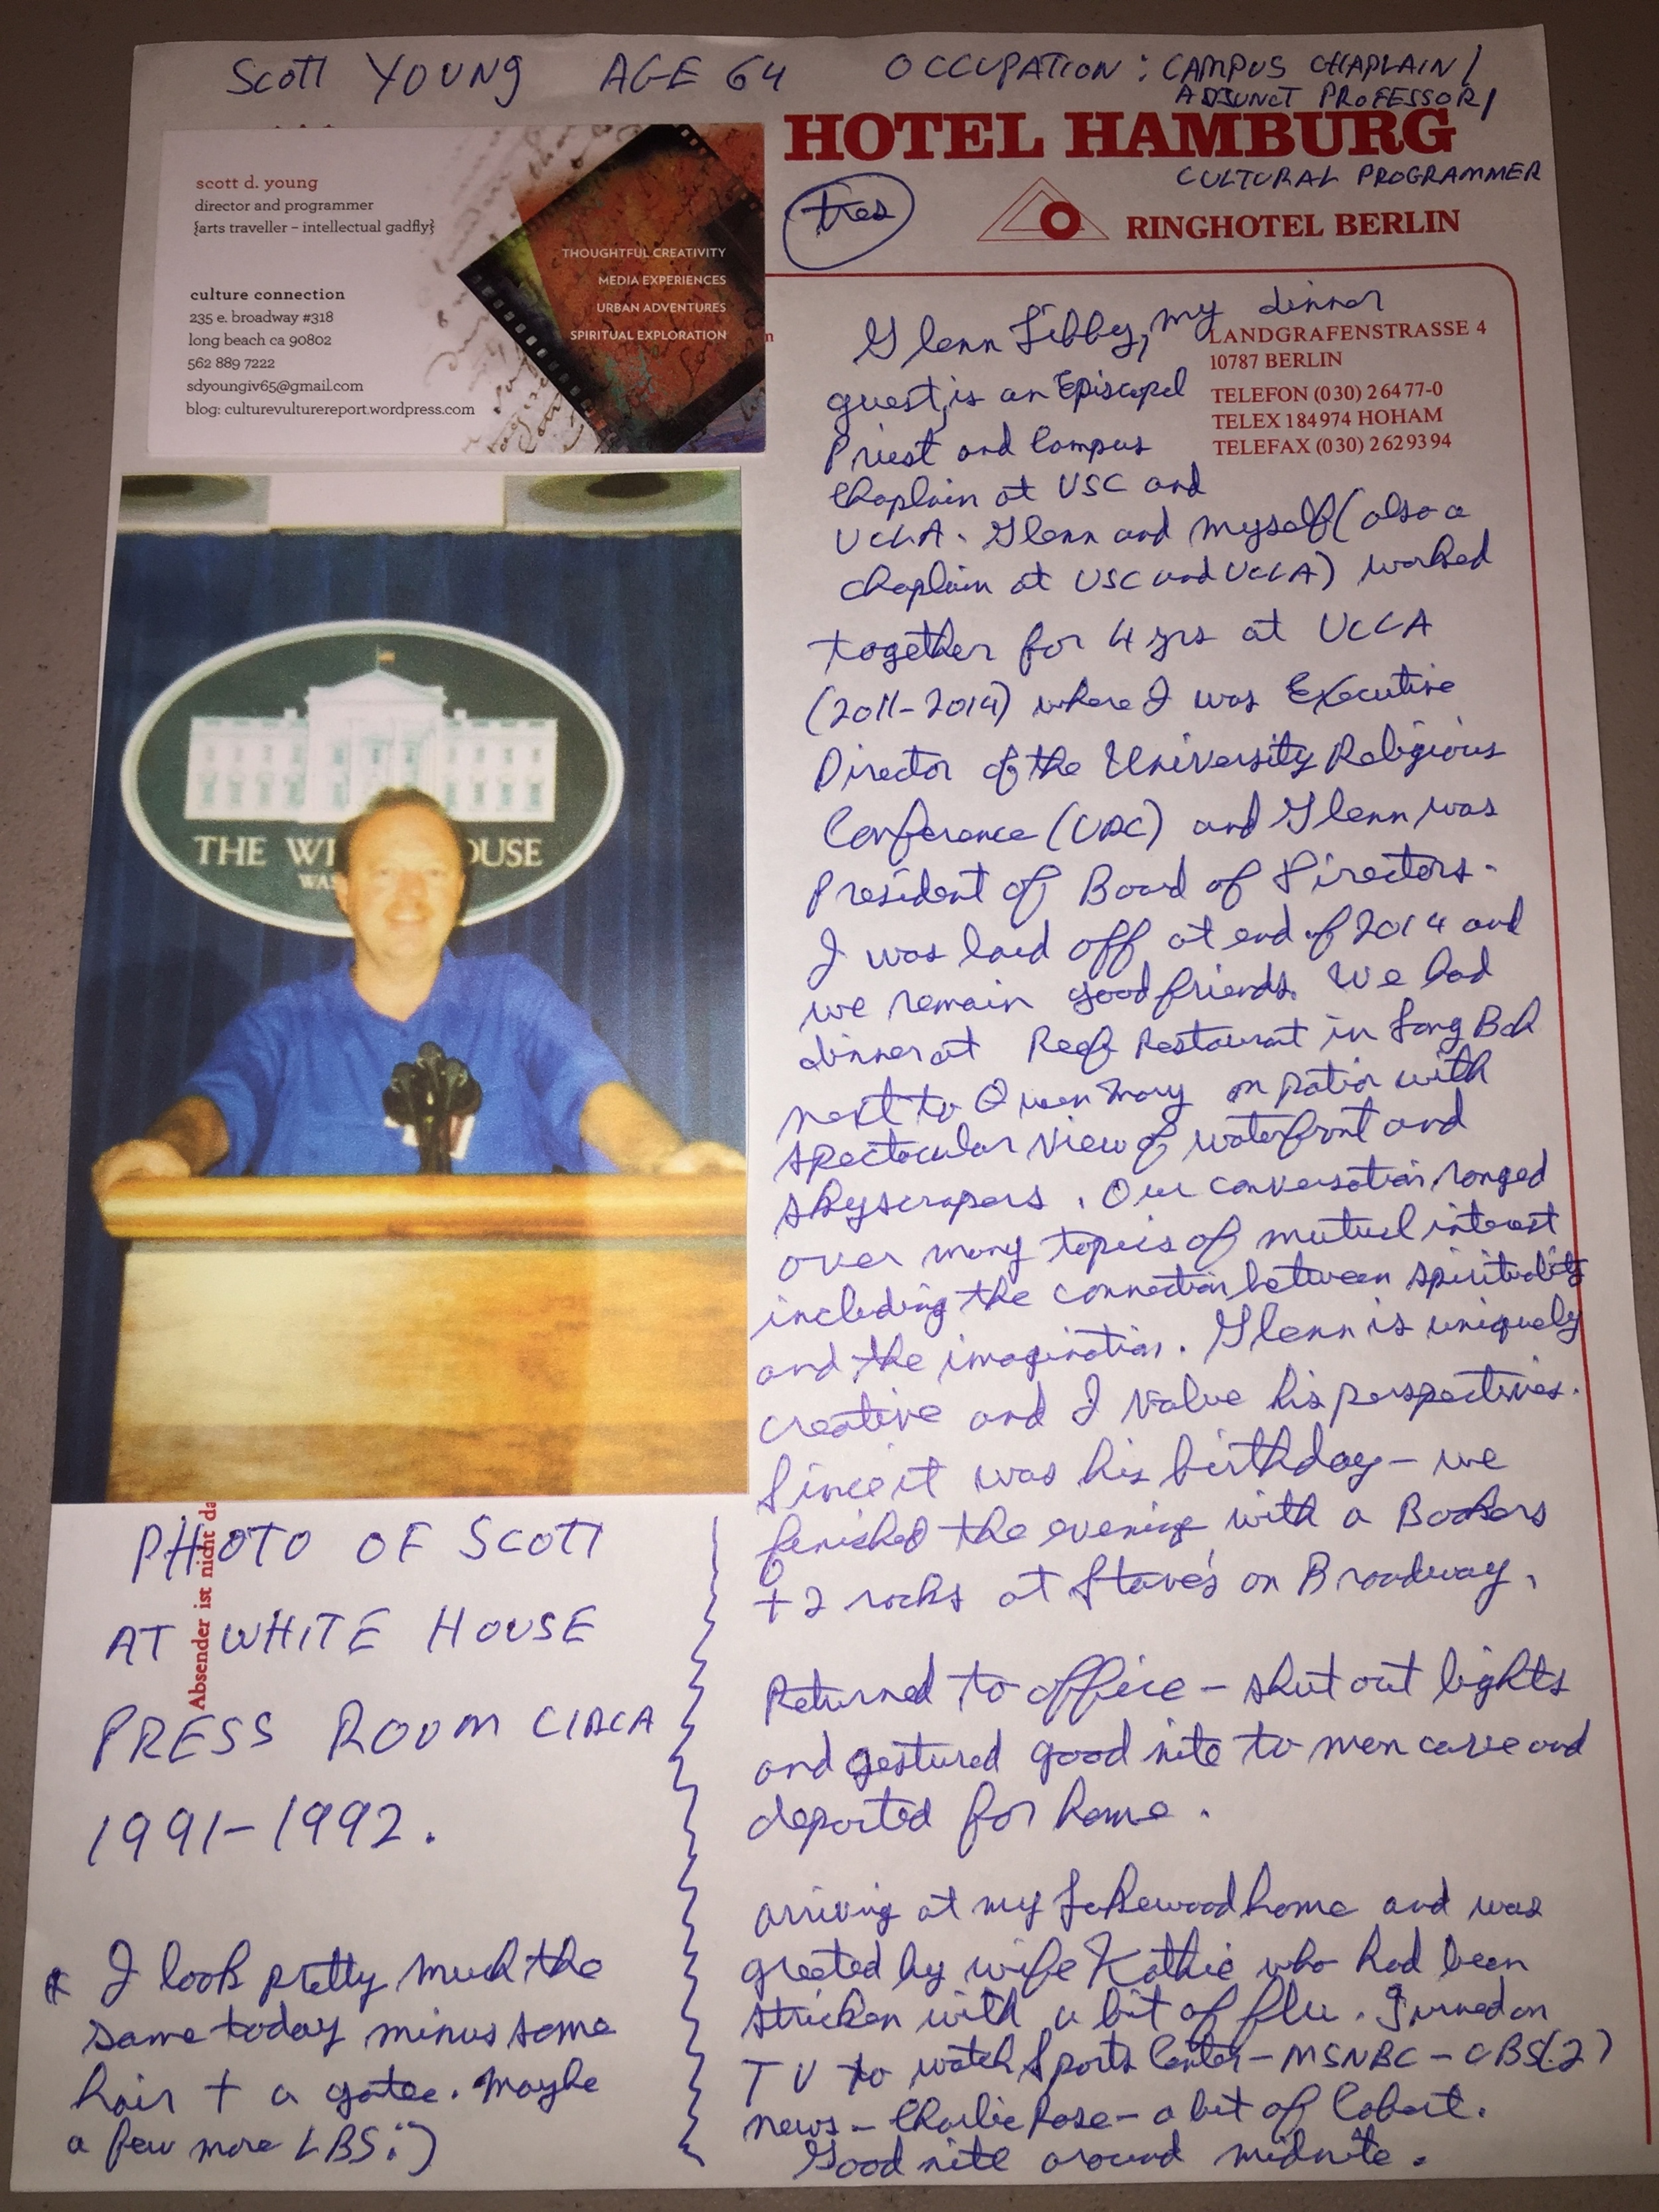 Scott YOUNG AGE 64 OCCUPATION: CAMPUS CHAPLAIN/
ADJUNCT PROFESSOR/
CULTURAL PROGRAMMER
HOTEL HAMBURG
RINGHOTEL BERLIN
tres
scott d. young
director and programmer
{arts traveller – intellectual gadfly}
culture connection
235 e. broadway #318
long beach ca 90802
562 889 7222
sdyoungiv65@gmail.com
blog: culturevulturereport.wordpress.com
THOUGHTFUL CREATIVITY
MEDIA EXPERIENCES
URBAN ADVENTURES
SPIRITUAL EXPLORATION
LANDGRAFENSTRASSE 4
10787 BERLIN
TELEFON (030) 26477-0
TELEX 184974 HOHAM
TELEFAX (030) 2629394
Glenn Libby, my dinner
guest, is an Episcopal
Priest and Campus
Chaplain at USC and
UCLA. Glenn and myself (also a
chaplain at USC and UCLA) worked
together for 4 yrs at UCLA
(2011-2014) where I was Executive
Director of the University Religious
Conference (URC) and Glenn was
President of Board of Directors.
I was laid off at end of 2014 and
we remain good friends. We had
dinner at Reef Restaurant in Long Bch
next to Queen Mary on patio with
spectacular view of waterfront and
skyscrapers. Our conversation ranged
over many topics of mutual interest
including the connection between spirituality
and the imagination. Glenn is uniquely
creative and I value his perspectives.
Since it was his birthday - we
finished the evening with a Bookers
+ 2 rocks at Stave's on Broadway.
Returned to office - shut out lights
and gestured good nite to men cave and
departed for home.
arriving at my Lakewood home and was
greeted by wife Kathie who had been
stricken with a bit of flu. Turned on
TV to watch Sports Center - MSNBC - CBS(2)
news - Charlie Rose - a bit of Colbert.
Good nite around midnite.
THE WHITE HOUSE
Absender ist nicht da
PHOTO OF SCOTT
AT WHITE HOUSE
PRESS ROOM CIRCA
1991-1992.
* I look pretty much the
same today minus some
hair + a gotee. Maybe
a few more LBS :)